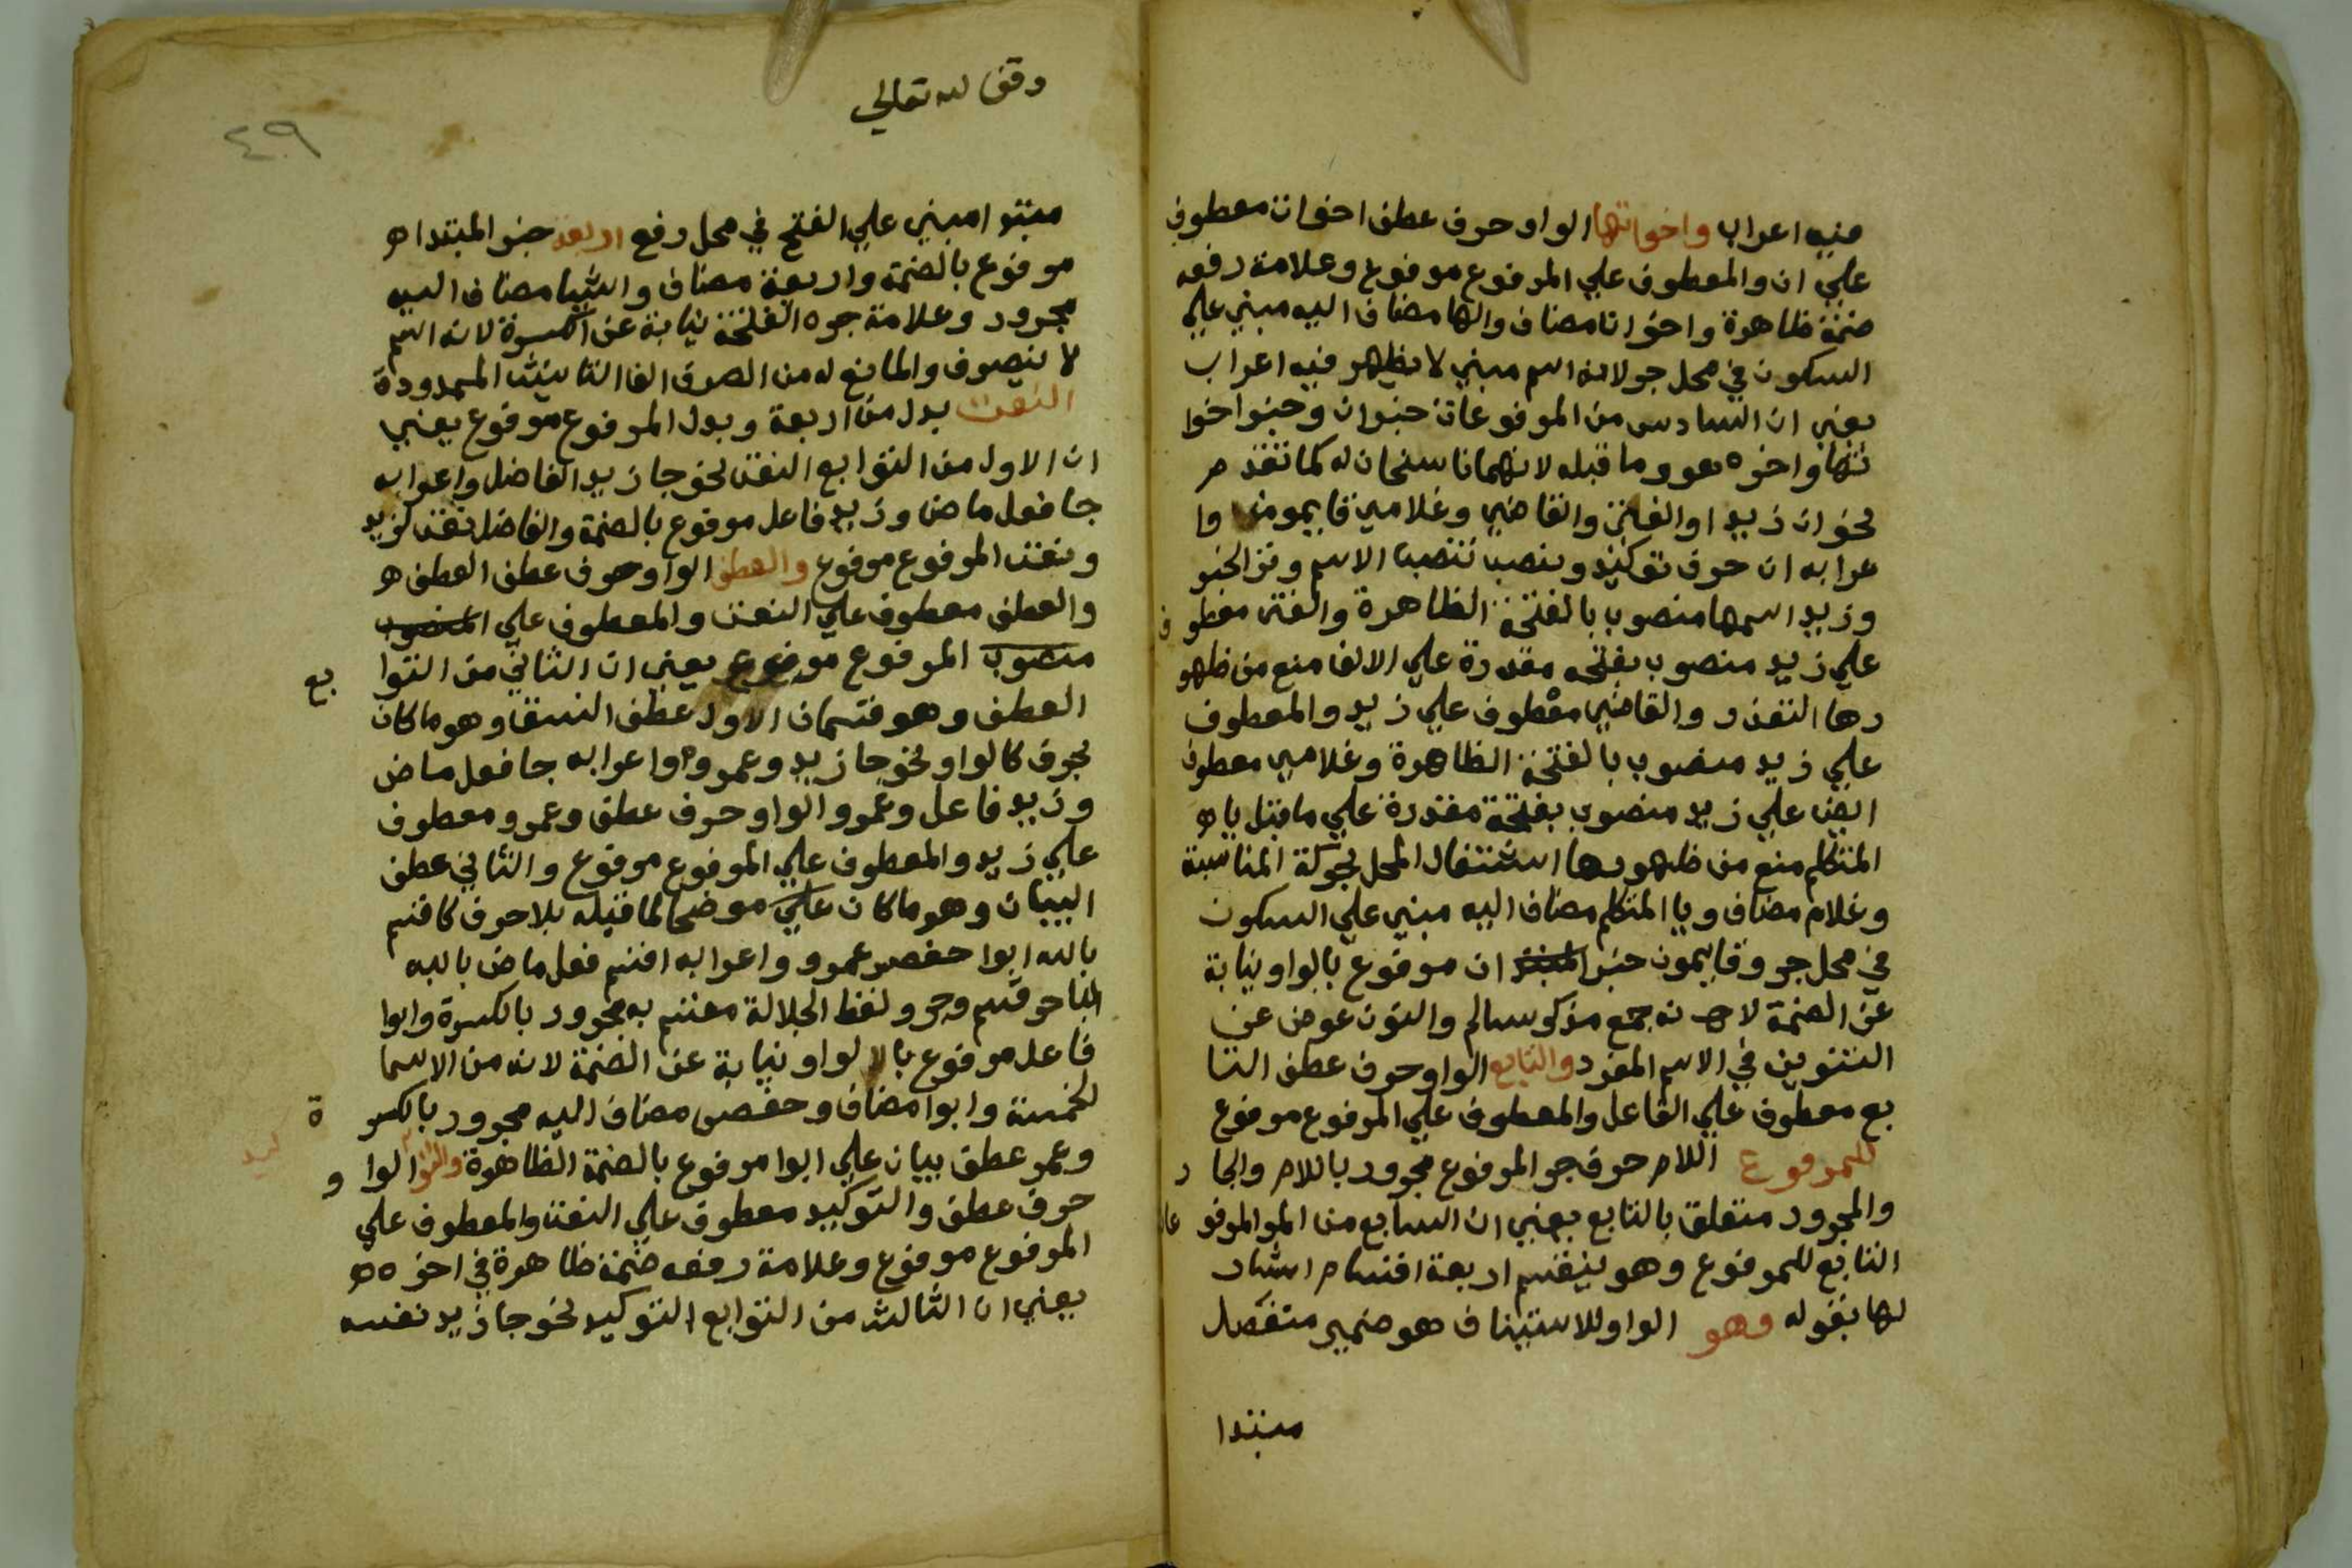 فيه اعراب واخواتها الواو حرف عطف اخوات معطوف
علي ان والمعطوف علي المرفوع مرفوع وعلامة رفعه
ضمة ظاهرة واخوات مضاف والها مضاف اليه مبني علي
السكون في محل جر لانه اسم مبني لا يظهر فيه اعراب
يعني ان السادس من المرفوعات خبر ان وخبر اخوا
تها واخره عو وما قبله لانهما ناسخان له كما تقدم
نحو ان زيدا والفتي والقاضي وغلامي قايمون وا
عرابه ان حرف توكيد ونصب تنصب الاسم وترفع الخبر
وزيد اسمها منصوب بالفتحة الظاهرة والفتي معطوف
علي زيد منصوب بفتحه مقدرة علي الالف منع من ظهو
رها التعذر والقاضي معطوف علي زيد والمعطوف
علي زيد منصوب بالفتحة الظاهرة وغلامي معطوف
ايض علي زيد منصوب بفتحة مقدرة علي ما قبل ياء
المتكلم منع من ظهورها اشتغال المحل بحركة المناسبة
وغلام مضاف ويا المتكلم مضاف اليه مبني علي السكون
في محل جر وقايمون خبر المبتدا ان مرفوع بالواو نيابة
عن الضمة لانه جمع مذكر سالم والنون عوض عن
التنوين في الاسم المفرد والتابع الواو حرف عطف التا
بع معطوف علي الفاعل والمعطوف علي المرفوع مرفوع
للمرفوع اللام حرف جر المرفوع مجرور باللام والجار
والمجرور متعلق بالتابع يعني ان السابع من المر المرفوعات
التابع للمرفوع وهو ينقسم اربعة اقسام اشار
لها بقوله وهو الواو للاستيناف هو ضمير منفصل
مبتدا
وقف لله تعالي
٤٩
مبتدا مبني علي الفتح في محل رفع اربعة خبر المبتدا ه
مرفوع بالضمة واربعة مضاف واشيا مضاف اليه
مجرور وعلامة جره الفتحة نيابة عن الكسرة لانه اسم
لا ينصرف والمانع له من الصرف الفا التانيث الممدودة
النعت بدل من اربعة وبدل المرفوع مرفوع يعني
ان الاول من التوابع النعت نحو جا زيد الفاضل واعرابه
جا فعل ماض وزيد فاعل مرفوع بالضمة والفاضل نعت لزيد
ونعت المرفوع مرفوع والعطف الواو حرف عطف العطف ه
والعطف معطوف علي النعت والمعطوف علي المنصوب
منصوب المرفوع مرفوع يعني ان الثاني من التوا بع
العطف وهو قسمان الاول عطف النسق وهو ما كان
بحرف كالواو نحو جا زيد وعمرو واعرابه جا فعل ماض
وزيد فاعل وعمرو الواو حرف عطف وعمرو معطوف
علي زيد والمعطوف علي المرفوع مرفوع والثاني عطف
البيان وهو ما كان علي موضحا لما قبله بلا حرف كاقسم
بالله ابوا حفص عمرو واعرابه اقسم فعل ماض بالله
البا حرف قسم وجر ولفظ الجلالة مقسم به مجرور بالكسرة وابوا
فاعل مرفوع بالواو نيابة عن الضمة لانه من الاسما
لخمسة وابوا مضاف وحفص مضاف اليه مجرور بالكسر ة
وعمر عطف بيان علي ابوا مرفوع بالضمة الظاهرة والتوا كيد الوا و
حرف عطف والتوكيد معطوف علي النعت والمعطوف علي
المرفوع مرفوع وعلامة رفعه ضمة ظاهرة في اخره ه
يعني ان الثالث من التوابع التوكيد نحو جا زيد نفسه